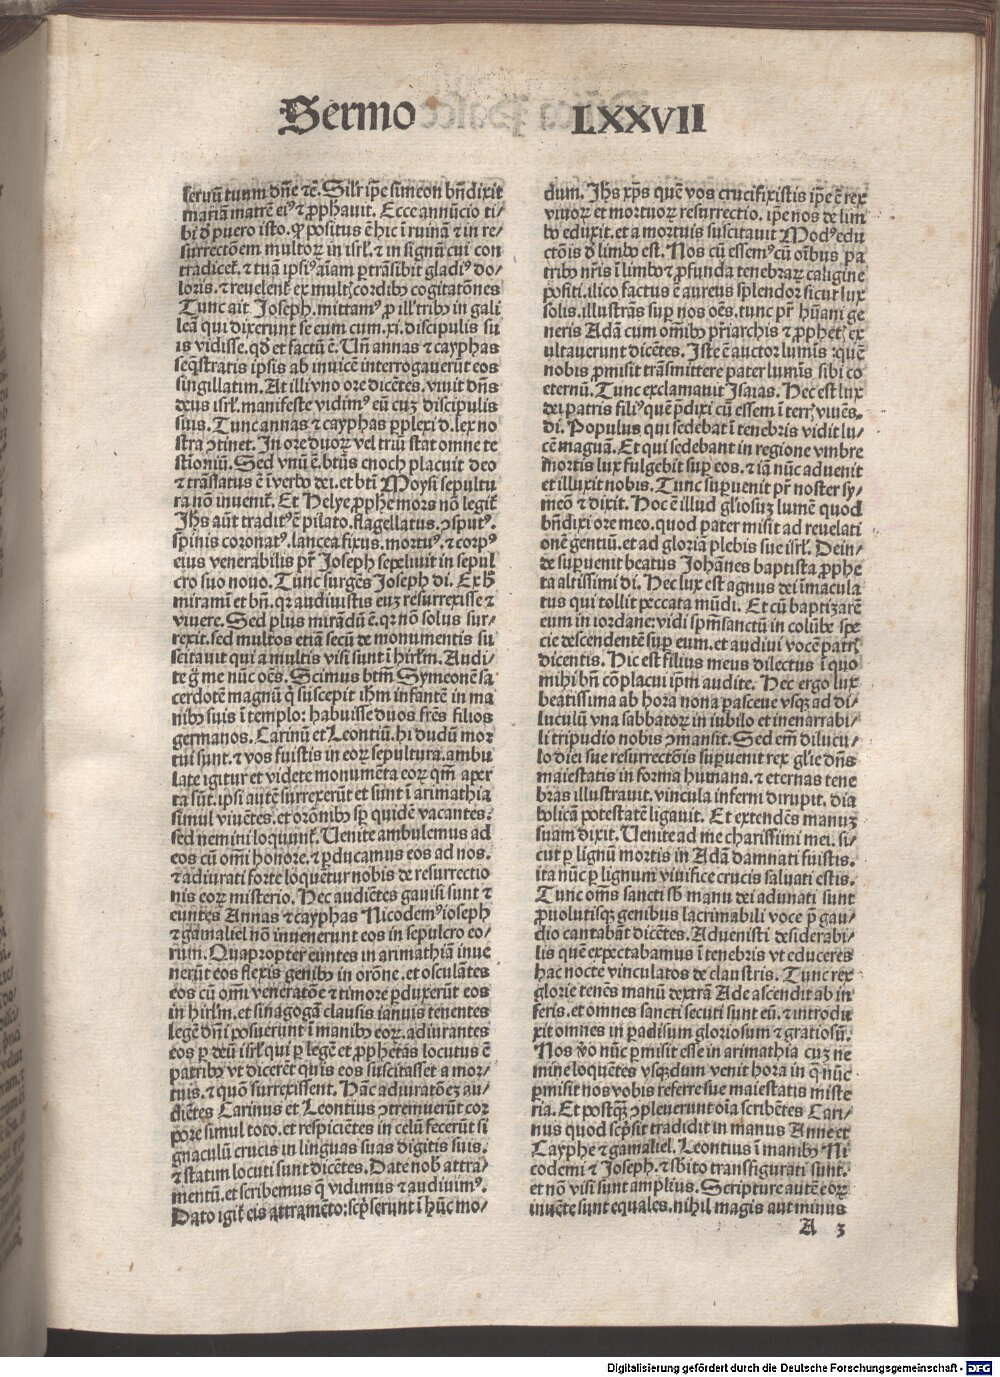 Sermo LXXVII
seruũ tuum dñe ⁊c̃. Silr̃ ip̃e simeon bñdixit
mariã matrẽ eiꝰ ⁊ ꝓphauit. Ecce annũcio ti-
bi ð puero isto. qꝛ positus ẽ hic ĩ ruinã ⁊ in re/
surrectõem multoꝝ in isrl̃. ⁊ in signũ cui con
tradicet̃. ⁊ tuã ipsiꝰ aĩam ꝑtrãsibit gladiꝰ do/
loris. ⁊ reuelent̃ ex multꝭ cordibꝰ cogitatõnes
Tunc ait Joseph. mittamꝰ ꝓ ill' tribꝰ in gali
leã qui dixerunt se eum cum .xi. discipulis su
is vidisse. qð et factũ ẽ. Uñ annas ⁊ cayphas
seq̃stratis ipsis ab inuicẽ interrogauerũt eos
singillatim. At illi vno ore dicẽtes. viuit dñs
deus isrl̃. manifeste vidimꝰ eũ cuʒ discipulis
suis. Tunc annas ⁊ cayphas ꝑplexi d. lex no
stra ↄtinet. In ore duoꝝ vel triũ stat omne te
stioniũ. Sed vnũ ẽ. btũs enoch placuit deo
⁊ trãslatus ẽ ĩ verbo dei. et btĩ Moysi sepultu
ra nõ inuenit̃. Et Helye ꝓphe mors nõ legit̃
Jhs aũt traditꝰ ẽ pilato. flagellatus. ↄsputꝰ.
spinis coronatꝰ. lancea fixus. mortuꝰ. ⁊ corpꝰ
eius venerabilis pr̃ Joseph sepeliuit in sepul
cro suo nouo. Tunc surgẽs Joseph di. Ex h̃
miramĩ et bñ. qꝛ audiuistis euʒ resurrexisse ⁊
viuere. Sed plus mirãdũ ẽ. qꝛ nõ solus sur/
rexit. sed multos etiã secũ de monumentis su
scitauit qui a multis visi sunt ĩ hirl̃m. Audi/
te g̃ me nũc oẽs. Scimus btm̃ Symeonẽ sa
cerdotẽ magnũ q̃ suscepit ihm̃ infantẽ in ma
nibꝰ suis ĩ templo: habuisse duos fr̃es filios
germanos. Carinũ et Leontiũ. hi dudũ mor
tui sunt. ⁊ vos fuistis in eoꝝ sepultura. ambu
late igitur et videte monumẽta eoꝝ qm̃ aper
ta sũt. ipsi autẽ surrexerũt et sunt ĩ arimathia
simul viuẽtes. et orõnibꝰ sp̃ quidẽ vacantes.
sed nemini loquunt̃. Uenite ambulemus ad
eos cũ om̃i honore. ⁊ ꝑducamus eos ad nos.
⁊ adiurati forte loquẽtur nobis de resurrectio
nis eoꝝ misterio. Hec audiẽtes gauisi sunt ⁊
euntes Annas ⁊ cayphas Nicodemꝰ ioseph
⁊ gamaliel nõ inuenerunt eos in sepulcro eo/
rum. Quapropter euntes in arimathiã inue
nerũt eos flexis genibꝰ in orõne. et osculãtes
eos cũ om̃i veneratõe ⁊ timore ꝑduxerũt eos
in hirl̃m. et sinagogã clausis ianuis tenentes
legẽ dñi posuerunt ĩ manibꝰ eoꝝ. adiurantes
eos ꝑ deũ isrl̃ qui ꝑ legẽ et ꝓphetas locutus ẽ
patribꝰ vt dicerẽt quis eos suscitasset a mor/
tuis. ⁊ quõ surrexissent. Hãc adiuratõeʒ au/
diẽtes Carinus et Leontius ↄtremuerũt cor
pore simul toto. et respiciẽtes in celũ fecerũt si
gnaculũ crucis in linguas suas digitis suis.
⁊ statim locuti sunt dicẽtes. Date nob̃ attra/
mentũ. et scribemus q̃ vidimus ⁊ audiuimꝰ.
Dato igit̃ eis attramẽto: scp̃serunt ĩ hũc mo/
dum. Jhs xp̃s quẽ vos crucifixistis ip̃e ẽ rex
viuoꝝ et mortuoꝝ resurrectio. ip̃e nos de lim
bo eduxit. et a mortuis suscitauit Modꝰ edu
ctõis ð limbo est. Nos cũ essemꝰ cũ oĩbus pa
tribꝰ nr̃is ĩ limbo ⁊ ꝓfunda tenebraꝝ caligine
positi. ilico factus ẽ aureus splendor sicut lux
solis. illustrãs suꝑ nos oẽs. tunc pr̃ hũani ge
neris Adã cum om̃ibꝰ pr̃iarchis ⁊ ꝓphetꝭ ex
ultauerunt dicẽtes. Iste ẽ auctor lumĩs: quẽ
nobis ꝓmisit trãsmittere pater lumĩs sibi co
eternũ. Tunc exclamauit Isaias. Hec est lux
dei patris filiꝰ quẽ p̃dixi cũ essem ĩ terrꝭ viuẽs.
di. Populus qui sedebat ĩ tenebris vidit lu/
cẽ magnã. Et qui sedebant in regione vmbre
mortis lux fulgebit suꝑ eos. ⁊ iã nũc aduenit
et illuxit nobis. Tunc suꝑuenit pr̃ noster sy/
meõ ⁊ dixit. Hoc ẽ illud gliosuʒ lumẽ quod
bñdixi ore meo. quod pater misit ad reuelati
onẽ gentiũ. et ad gloriã plebis sue isrl̃. Dein/
de suꝑuenit beatus Johãnes baptista ꝓphe
ta altissimi di. Hec lux est agnus dei ĩmacula
tus qui tollit peccata mũdi. Et cũ baptizarẽ
eum in iordane: vidi spm̃sanctũ in colũbe spe
cie descendentẽ suꝑ eum. et audiui vocẽ patrꝭ
dicentis. Hic est filius meus dilectus ĩ quo
mihi bñ cõplacui ip̃m audite. Hec ergo lux
beatissima ab hora nona pasceue vsqʒ ad di/
luculũ vna sabbatoꝝ in iubilo et inenarrabi/
li tripudio nobis ↄmansit. Sed em̃ dilucu/
lo diei sue resurrectõis suꝑuenit rex gl'ie dñs
maiestatis in forma humana. ⁊ eternas tene
bras illustrauit. vincula inferni dirupit. dia
bolicã potestatẽ ligauit. Et extendẽs manuʒ
suam dixit. Uenite ad me charissimi mei. si/
cut ꝑ lignũ mortis in Adã damnati fuistis.
ita nũc ꝑ lignum viuifice crucis saluati estis.
Tunc om̃s sancti sb̃ manu dei adunati sunt
ꝓuolutisqʒ genibus lacrimabili voce p̃ gau/
dio cantabãt dicẽtes. Aduenisti desiderabi/
lis quẽ expectabamus ĩ tenebris vt educeres
hac nocte vinculatos de claustris. Tunc rex
glorie tenẽs manũ dextrã Ade ascendit ab in/
feris. et omnes sancti secuti sunt eũ. ⁊ introdu
xit omnes in padisum gloriosum ⁊ gratiosũ.
Nos v̊o nũc ꝑmisit esse in arimathia cuʒ ne
mine loquẽtes vsqʒdum venit hora in q̃ nũc
ꝑmisit nos vobis referre sue maiestatis miste
ria. Et postqʒ ↄpleuerunt oĩa scribẽtes Cari/
nus quod scp̃sit tradidit in manus Anne et
Cayphe ⁊ gamaliel. Leontius ĩ manibꝰ Ni
codemi ⁊ Joseph. ⁊ sb̃ito transfigurati sunt.
et nõ visi sunt amplius. Scripture autẽ eoꝝ
inuẽte sunt equales. nihil magis aut minus
A 3
Digitalisierung gefördert durch die Deutsche Forschungsgemeinschaft - DFG